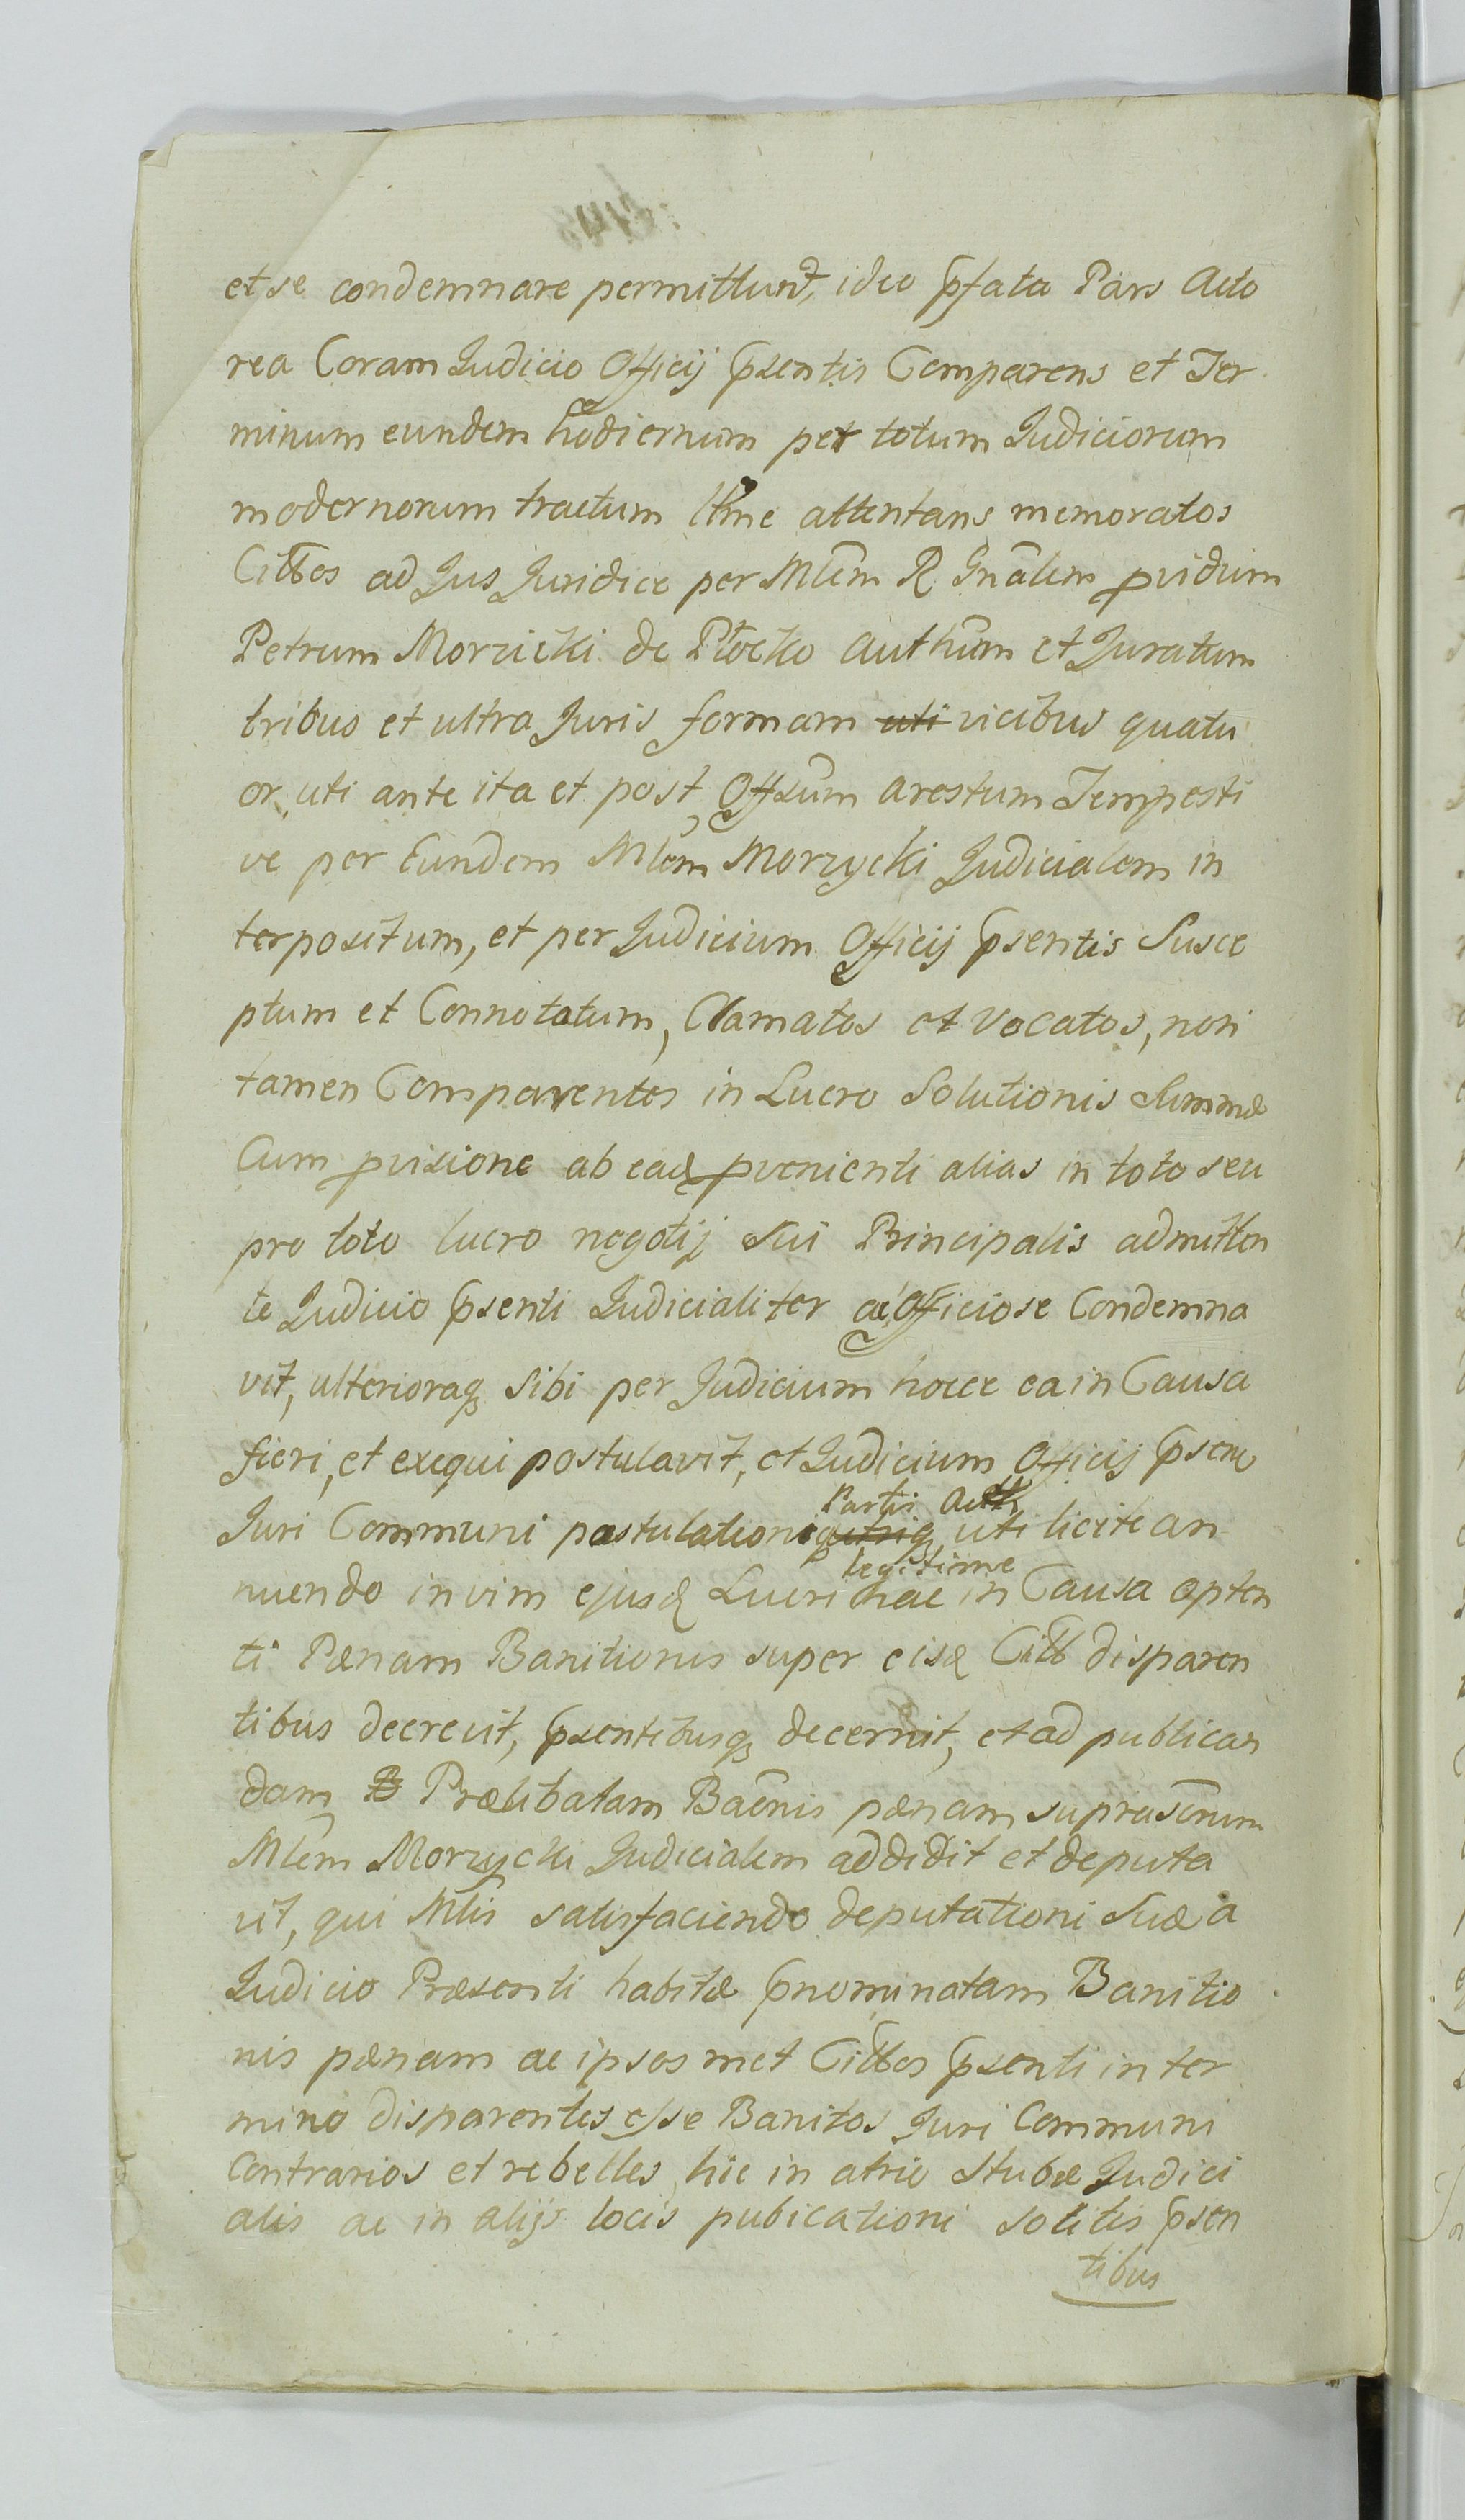 et se condemnare permittunt, ideo pfata Pars Acto
rea Coram Judicio Officij psentis Comparens et Ter
minum eundem hodiernum per totum Judiciorum
modernorum tractum lttme attentans memoratos
Cittos ad Jus Juridice per Mlem R Gnalem pvidum
Petrum Morzicki de Płocko authum et Juratum
tribus et ultra Juris formam uti vicibus quatu
or, uti ante ita et post Offsum arestum Tempesti
ve per Eundem Mlem Morzycki Judicialem in
terpositum, et per Judicium Officij psentis Susce
ptum et Connotatum, Clamatos et vocatos, non
tamen Comparentes in Lucro Solutionis Summæ
Cum pvisione ab eadq pvenienti alias in toto seu
pro toto lucro negotij Sui Principalis admitten
te Judicio psenti Judicialiter ac Officiose Condemna
vit, ulterioraq sibi per Judicium hocce ea in Causa
fieri, et exequi postulavit, et Judicium Officij psens
Partis Actt
Juri Communi postulationiq utriq uti licite an
legitime
nuendo in vim ejusd Lucri hac in Causa opten
ti Pænam Banitionis super eisd Citt disparen
tibus decrevit, psentibusq decernit, et ad publican
dam B Prælibatam Banis pænam suprascrum
Mlem Morzycki Judicialem addidit et deputa
vit, qui Mlis satisfaciendo deputationi Suæ a
Judicio Præsenti habitæ pnominatam Banitio
nis pænam ac ipsos met Cittos psenti in ter
mino disparentes esse Banitos Juri Communi
Contrarios et rebelles hic in atrio Stubæ Judici
alis ac in alijs locis pubicationi solitis psen
tibus